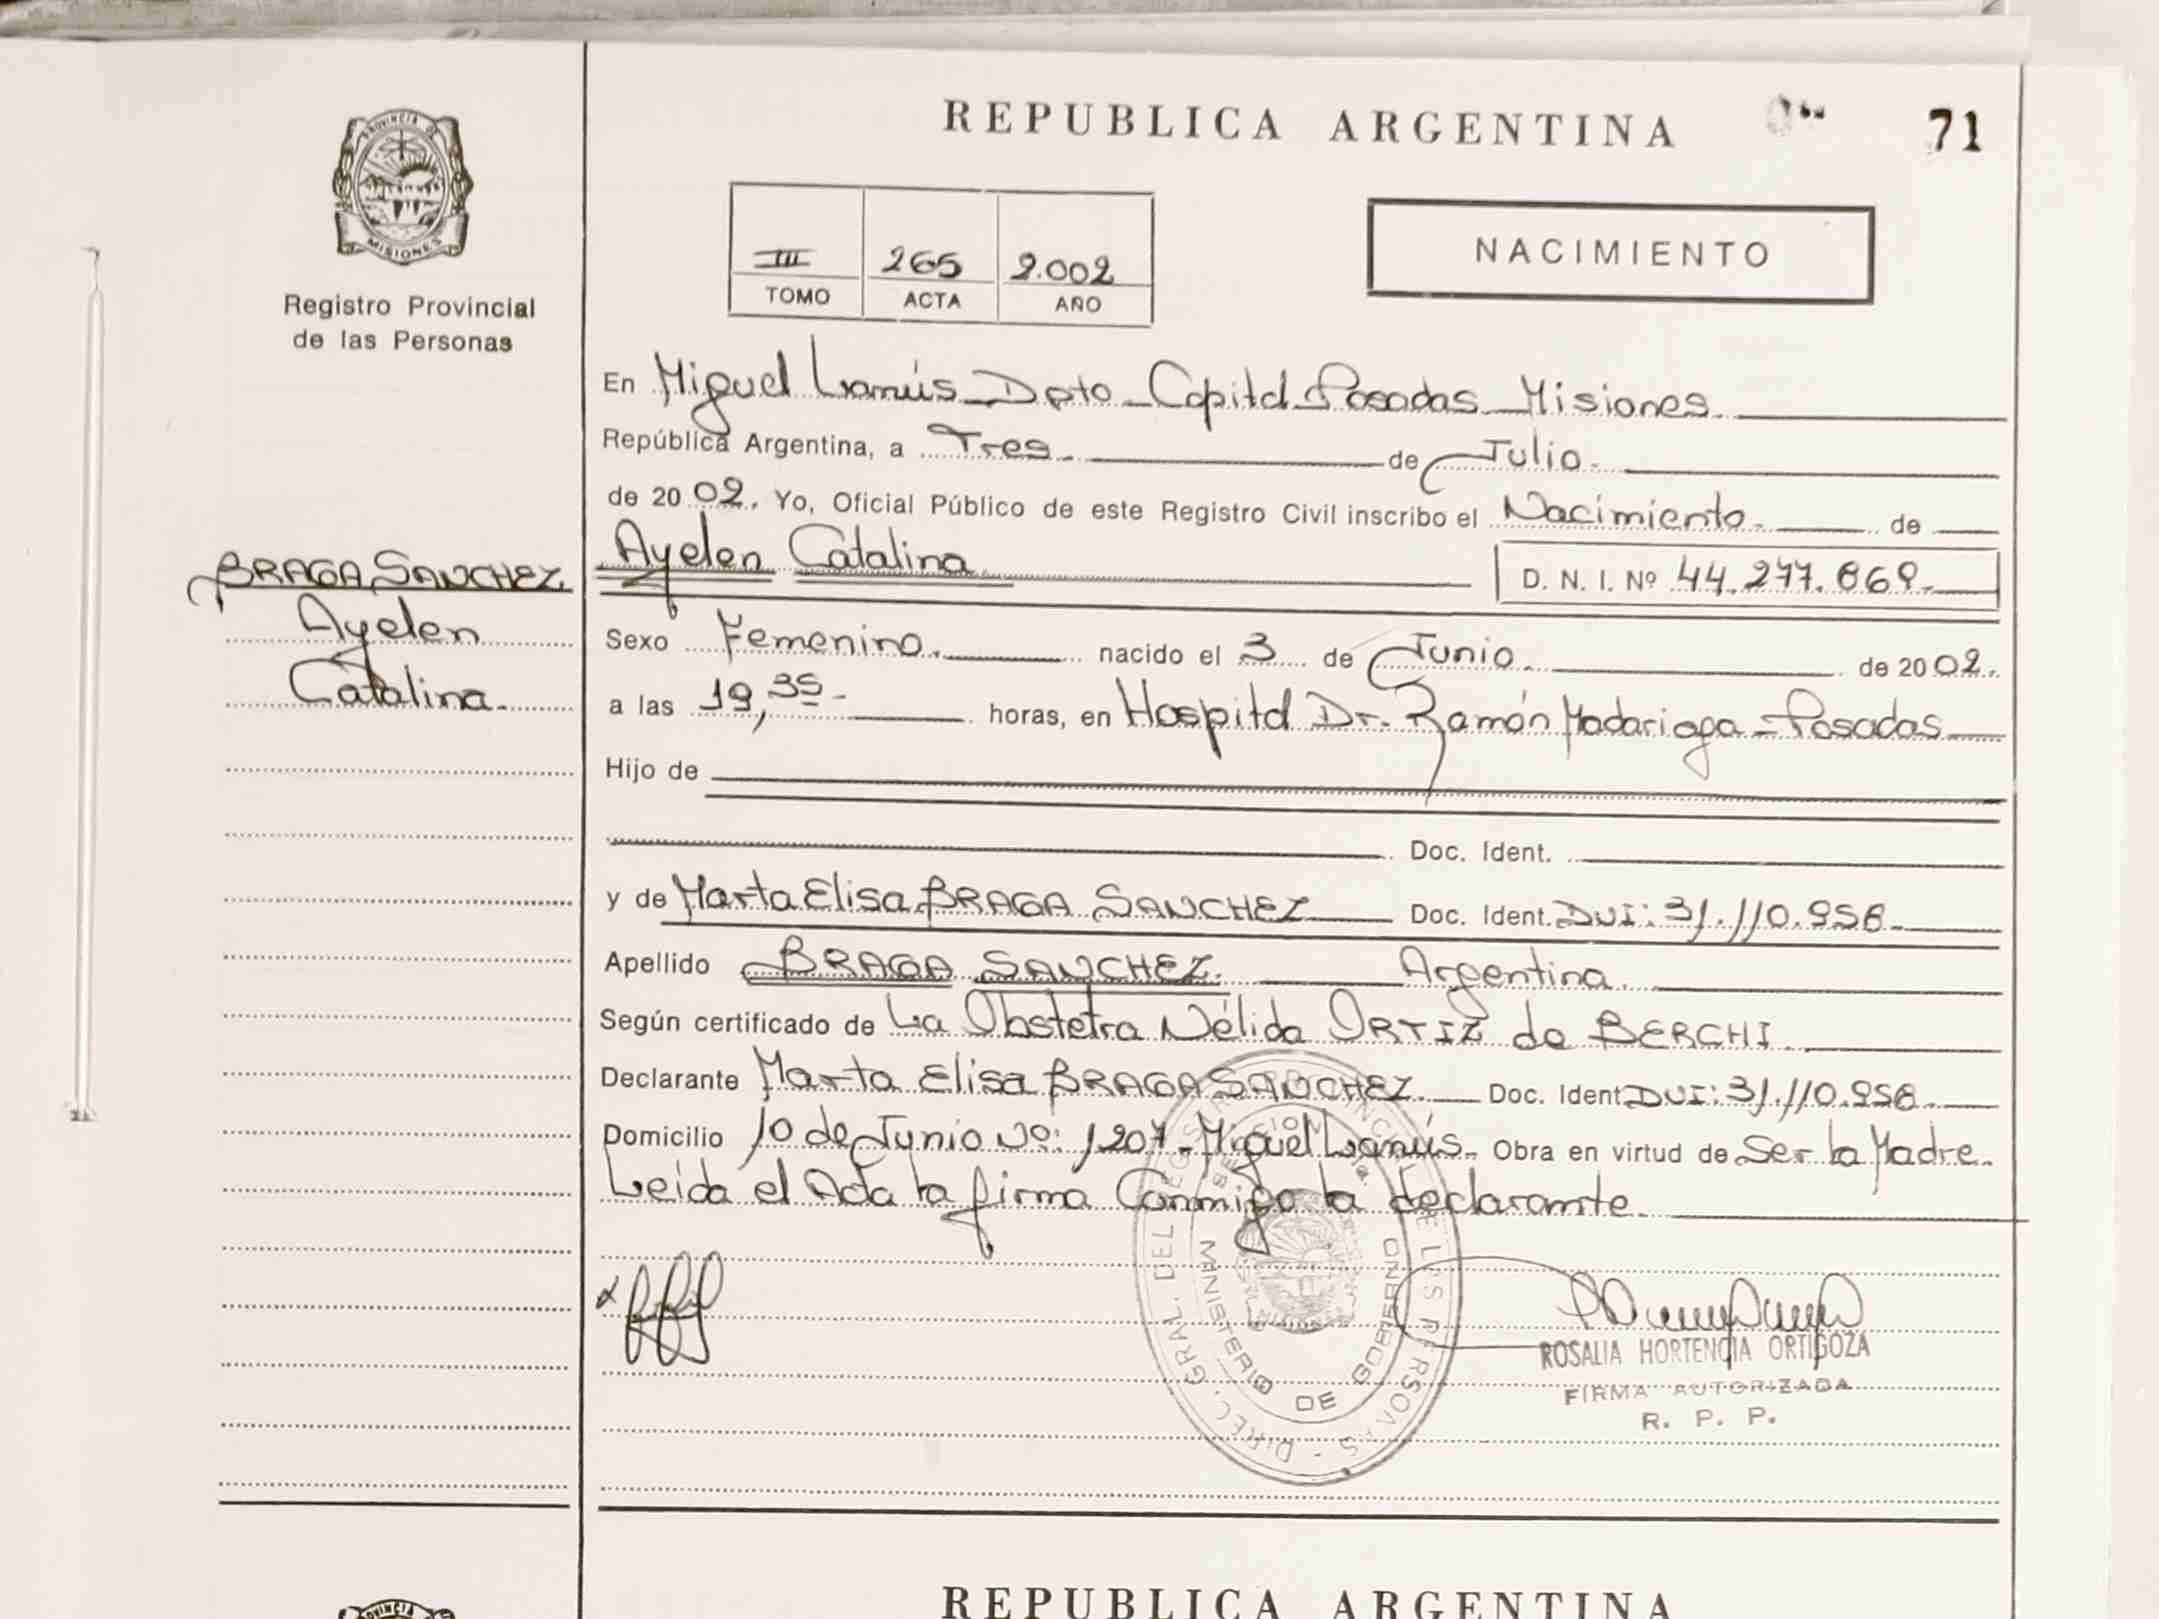 REPUBLICA ARGENTINA
71
PROVINCIA DE
MISIONES
Registro Provincial
de las Personas
III 265 2.002
TOMO ACTA AÑO
NACIMIENTO
En Miguel Lanús - Dpto - Capital Posadas - Misiones.
República Argentina, a Tres. de Julio.
de 20 02. Yo, Oficial Público de este Registro Civil inscribo el Nacimiento. de
BRAGA SANCHEZ
Ayelen
Catalina.
Ayelen Catalina D. N. I. Nº 44.277.869.
Sexo Femenino. nacido el 3 de Junio. de 20 02.
a las 19,35 - horas, en Hospital Dr. Ramón Madariaga - Posadas
Hijo de
Doc. Ident.
y de Marta Elisa BRAGA SANCHEZ Doc. Ident. DUI: 31.110.958.
Apellido BRAGA SANCHEZ. Argentina.
Según certificado de La Obstetra Nélida ORTIZ de BERCHI.
Declarante Marta Elisa BRAGA SANCHEZ. Doc. Ident. DUI: 31.110.958.
Domicilio 10 de Junio Nº: 1207 - Miguel Lanús. Obra en virtud de Ser la Madre.
Leida el Acta la firma Conmigo la declarante.
DIREC. GRAL. DEL
MINISTERIO DE GOBIERNO
ROSALIA HORTENCIA ORTIGOZA
FIRMA AUTORIZADA
R. P. P.
PROVINCIA
REPUBLICA ARGENTINA